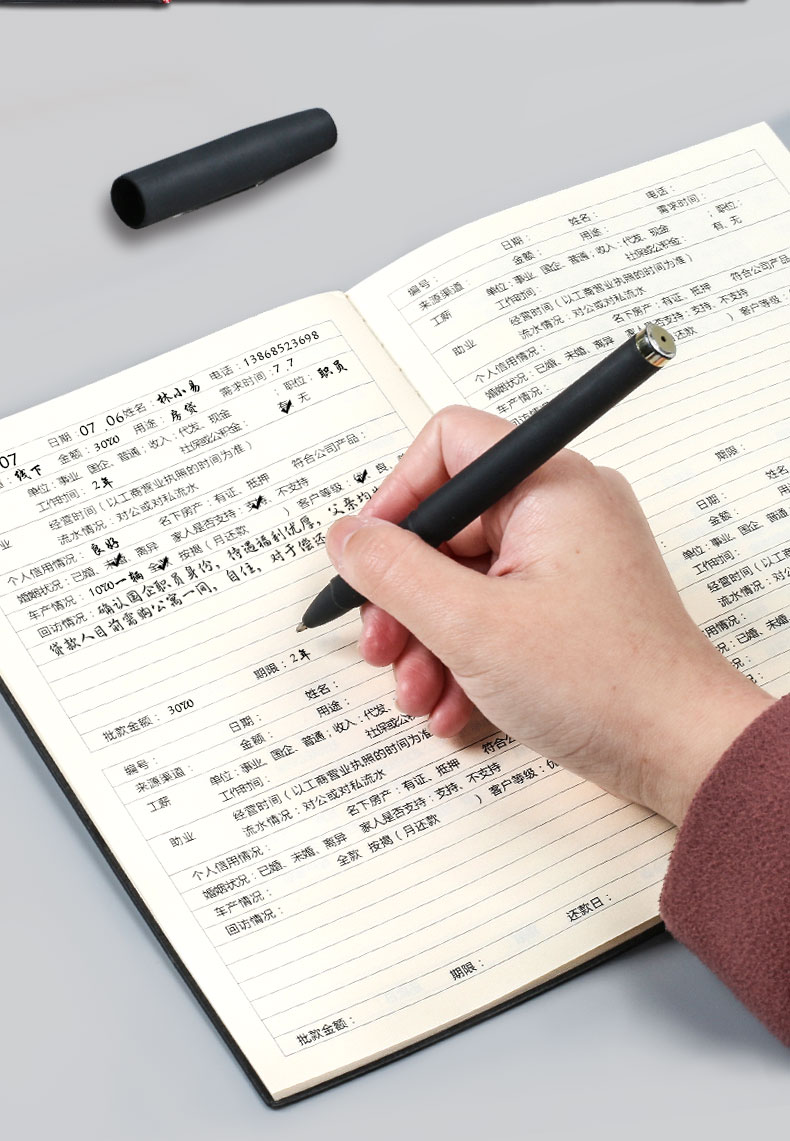 07 日期：07 06 姓名：林小易 电话：13868523698
线下 金额：30万 用途：房贷 需求时间：7.7
单位：事业、国企、普通；收入：代发、现金 ；职位：职员
工作时间：2年 社保或公积金： 无
经营时间（以工商营业执照的时间为准）
业 流水情况：对公或对私流水
个人信用情况：良好 名下房产：有证、抵押 符合公司产品：
婚姻状况：已婚、未婚 离异 家人是否支持：支持、不支持
车产情况：10万一辆 全款 按揭（月还款 ）客户等级： 良、
回访情况：确认国企职员身份，待遇福利优厚，父亲均
贷款人目前需购公寓一间，自住，对于偿还
批款金额：30万 期限：2年
编号： 日期： 姓名：
来源渠道： 金额： 用途：
工薪 单位：事业、国企、普通；收入：代发、
工作时间： 社保或公积
助业 经营时间（以工商营业执照的时间为准
流水情况：对公或对私流水
个人信用情况： 名下房产：有证、抵押 符合公
婚姻状况：已婚、未婚、离异 家人是否支持：支持、不支持
车产情况： 全款 按揭（月还款 ）客户等级：优
回访情况：
批款金额： 期限： 还款日：
编号： 日期： 姓名： 电话：
来源渠道： 金额： 用途： 需求时间：
工薪 单位：事业、国企、普通；收入：代发、现金 ；职位：
工作时间： 社保或公积金： 有、无
助业 经营时间（以工商营业执照的时间为准）
流水情况：对公或对私流水
个人信用情况： 名下房产：有证、抵押 符合公司产品
婚姻状况：已婚、未婚、离异 家人是否支持：支持、不支持
车产情况： 还款 ）客户等级：
回访情况：
期限：
日期： 姓名
金额： 用
单位：事业、国企、普
工作时间：
经营时间（以工
流水情况：对
用情况：
况：已婚、未婚
况：